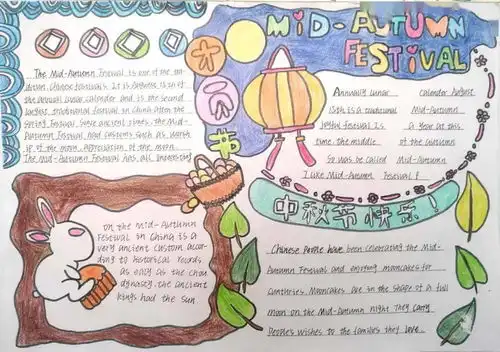 MID-AUTUMN
FESTIVAL
The Mid-Autumn Festival is one of the
Chinese festivals. It is
the annual lunar calendar and is the second
largest traditional festival in China after the
Spring Festival. Since ancient times, the Mid-
Autumn Festival had customs such as worsh
ip of the moon. Appreciation of the moon.
The Mid-Autumn Festival has all
Annually lunar calendar August
15th is a traditional Mid-Autumn
joyful festival Is a year at this
time. the middle of the autumn
So was be called Mid-Autumn
I like Mid-Autumn Festival!
中秋节快乐!
on the mid-Autumn
Festival in China is a
very ancient custom accor-
ding to historical records
as easy as the chou
dynasty. the ancient
kings had the sun
Chinese People have been celebrating the Mid-
Autumn Festival and enjoying mooncakes for
centuries. Mooncakes are in the shape of a full
moon on the Mid-Autumn night They carry
People's wishes to the families they love..